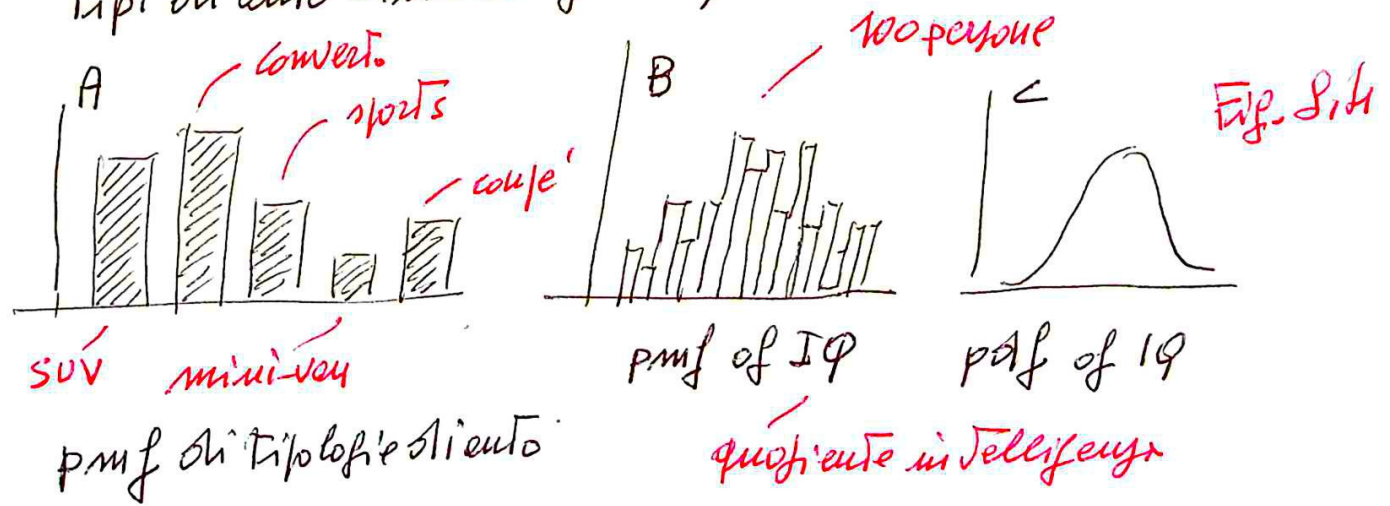 tipi di auto
A
convert.
sports
coupé
SUV
mini-van
pmf di tipologie di auto
B
100 persone
pmf of IQ
quoziente intelligenza
C
pdf of IQ
Fig.